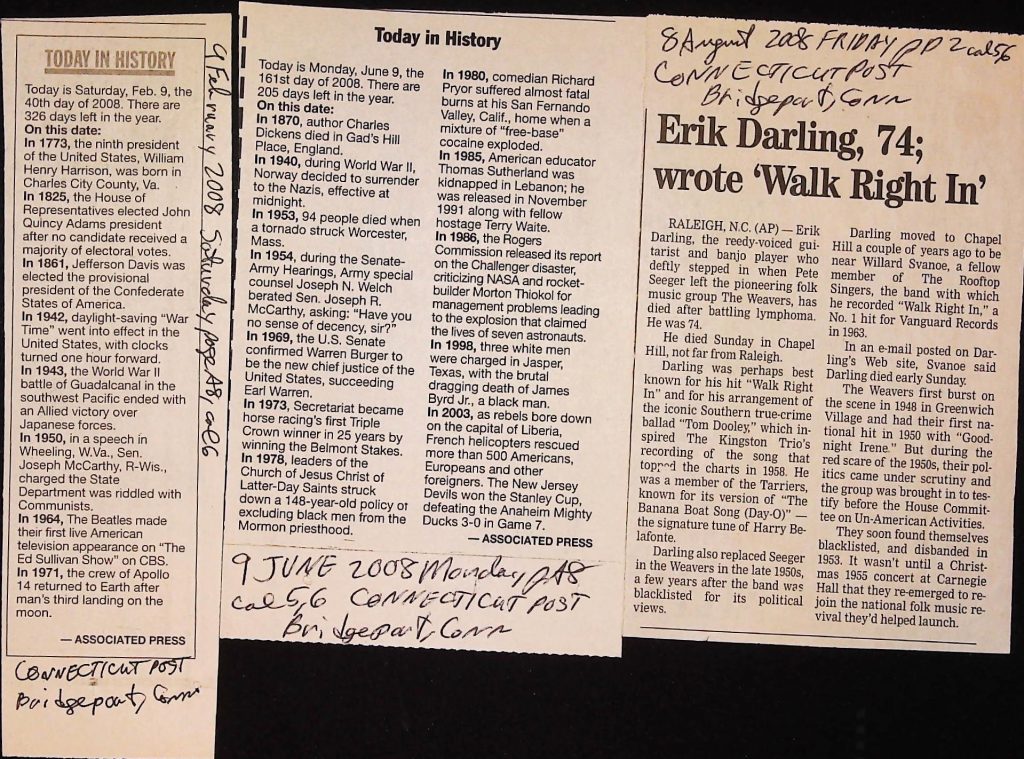 TODAY IN HISTORY
Today is Saturday, Feb. 9, the
40th day of 2008. There are
326 days left in the year.
On this date:
In 1773, the ninth president
of the United States, William
Henry Harrison, was born in
Charles City County, Va.
In 1825, the House of
Representatives elected John
Quincy Adams president
after no candidate received a
majority of electoral votes.
In 1861, Jefferson Davis was
elected the provisional
president of the Confederate
States of America.
In 1942, daylight-saving "War
Time" went into effect in the
United States, with clocks
turned one hour forward.
In 1943, the World War II
battle of Guadalcanal in the
southwest Pacific ended with
an Allied victory over
Japanese forces.
In 1950, in a speech in
Wheeling, W.Va., Sen.
Joseph McCarthy, R-Wis.,
charged the State
Department was riddled with
Communists.
In 1964, The Beatles made
their first live American
television appearance on "The
Ed Sullivan Show" on CBS.
In 1971, the crew of Apollo
14 returned to Earth after
man's third landing on the
moon.
— ASSOCIATED PRESS
CONNECTICUT POST
Bridgeport, Conn
9 February 2008 Saturday page A8, col 6
Today in History
Today is Monday, June 9, the
161st day of 2008. There are
205 days left in the year.
On this date:
In 1870, author Charles
Dickens died in Gad's Hill
Place, England.
In 1940, during World War II,
Norway decided to surrender
to the Nazis, effective at
midnight.
In 1953, 94 people died when
a tornado struck Worcester,
Mass.
In 1954, during the Senate-
Army Hearings, Army special
counsel Joseph N. Welch
berated Sen. Joseph R.
McCarthy, asking: "Have you
no sense of decency, sir?"
In 1969, the U.S. Senate
confirmed Warren Burger to
be the new chief justice of the
United States, succeeding
Earl Warren.
In 1973, Secretariat became
horse racing's first Triple
Crown winner in 25 years by
winning the Belmont Stakes.
In 1978, leaders of the
Church of Jesus Christ of
Latter-Day Saints struck
down a 148-year-old policy of
excluding black men from the
Mormon priesthood.
In 1980, comedian Richard
Pryor suffered almost fatal
burns at his San Fernando
Valley, Calif., home when a
mixture of "free-base"
cocaine exploded.
In 1985, American educator
Thomas Sutherland was
kidnapped in Lebanon; he
was released in November
1991 along with fellow
hostage Terry Waite.
In 1986, the Rogers
Commission released its report
on the Challenger disaster,
criticizing NASA and rocket-
builder Morton Thiokol for
management problems leading
to the explosion that claimed
the lives of seven astronauts.
In 1998, three white men
were charged in Jasper,
Texas, with the brutal
dragging death of James
Byrd Jr., a black man.
In 2003, as rebels bore down
on the capital of Liberia,
French helicopters rescued
more than 500 Americans,
Europeans and other
foreigners. The New Jersey
Devils won the Stanley Cup,
defeating the Anaheim Mighty
Ducks 3-0 in Game 7.
— ASSOCIATED PRESS
9 JUNE 2008 Monday, p A8
col 5,6 CONNECTICUT POST
Bridgeport, Conn
8 August 2008 FRIDAY pD2 col 5,6
CONNECTICUT POST
Bridgeport, Conn
Erik Darling, 74;
wrote 'Walk Right In'
RALEIGH, N.C. (AP) — Erik
Darling, the reedy-voiced gui-
tarist and banjo player who
deftly stepped in when Pete
Seeger left the pioneering folk
music group The Weavers, has
died after battling lymphoma.
He was 74.
He died Sunday in Chapel
Hill, not far from Raleigh.
Darling was perhaps best
known for his hit "Walk Right
In" and for his arrangement of
the iconic Southern true-crime
ballad "Tom Dooley," which in-
spired The Kingston Trio's
recording of the song that
topped the charts in 1958. He
was a member of the Tarriers,
known for its version of "The
Banana Boat Song (Day-O)" —
the signature tune of Harry Be-
lafonte.
Darling also replaced Seeger
in the Weavers in the late 1950s,
a few years after the band was
blacklisted for its political
views.
Darling moved to Chapel
Hill a couple of years ago to be
near Willard Svanoe, a fellow
member of The Rooftop
Singers, the band with which
he recorded "Walk Right In," a
No. 1 hit for Vanguard Records
in 1963.
In an e-mail posted on Dar-
ling's Web site, Svanoe said
Darling died early Sunday.
The Weavers first burst on
the scene in 1948 in Greenwich
Village and had their first na-
tional hit in 1950 with "Good-
night Irene." But during the
red scare of the 1950s, their pol-
itics came under scrutiny and
the group was brought in to tes-
tify before the House Commit-
tee on Un-American Activities.
They soon found themselves
blacklisted, and disbanded in
1953. It wasn't until a Christ-
mas 1955 concert at Carnegie
Hall that they re-emerged to re-
join the national folk music re-
vival they'd helped launch.